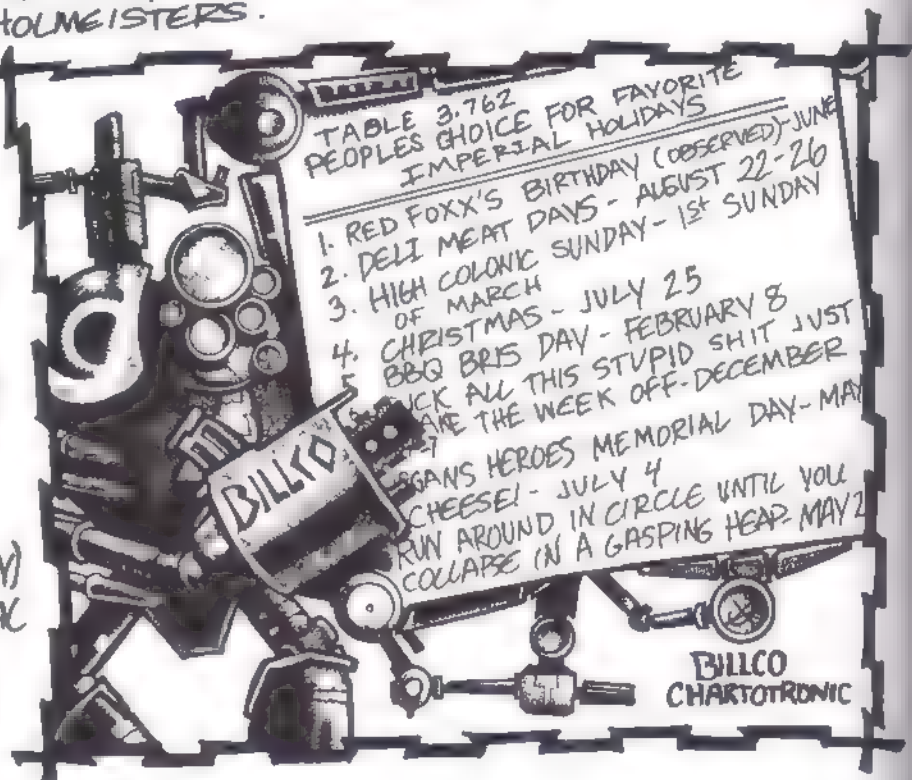 HOLMEISTERS.
TABLE 3.762
PEOPLES CHOICE FOR FAVORITE
IMPERIAL HOLIDAYS
1. RED FOXX'S BIRTHDAY (OBSERVED)-JUNE
2. DELI MEAT DAYS - AUGUST 22-26
3. HIGH COLONIC SUNDAY - 1st SUNDAY
OF MARCH
4. CHRISTMAS - JULY 25
BBQ BRIS DAY - FEBRUARY 8
ALL THIS STUPID SHIT JUST
THE WEEK OFF-DECEMBER
HEROES MEMORIAL DAY-MAY
CHEESE! - JULY 4
RUN AROUND IN CIRCLE UNTIL YOU
COLLAPSE IN A GASPING HEAP-MAY 2
BILLCO
BILLCO
CHARTOTRONIC